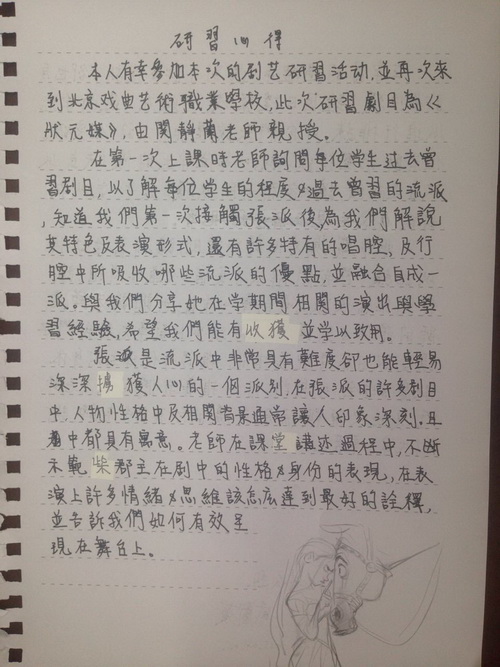 研習心得
本人有幸參加本次的剧艺研習活动,並再次來
到北京戏曲艺術職業學校,此次研習劇目為《
狀元媒》,由閻靜蘭老師親授。
在第一次上課時老師詢問每位学生过去曾
習剧目,以了解每位学生的程度及過去曾習的流派
,知道我們第一次接觸張派後,為我們解說
其特色及表演形式,還有許多特有的唱腔,及行
腔中所吸收哪些流派的優點,並融合自成一
派。與我們分享她在学期間相関的演出與學
習經驗,希望我們能有收獲並学以致用。
張派是流派中非常具有難度卻也能輕易
深深擄獲人心的一個派别,在張派的許多剧目
中,人物性格中及相関背景通常讓人印象深刻。且
當中都具有寓意。老師在課堂講述過程中,不断
示範柴郡主在剧中的性格及身份的表現,在表
演上許多情緒及思維該怎麼達到最好的詮釋,
並告訴我們如何有效呈
現在舞台上。